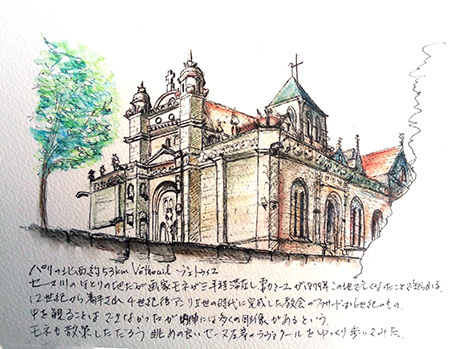 パリの北西約53km Vétheuil ヴェトゥイユ
セーヌ川のほとりの地だが画家モネが三年程滞在し妻カミーユが1879年この地で亡くなったことで知られる。
12世紀から着手され4世紀後アンリ2世の時代に完成した教会のファサードは16世紀のもの。
中を観ることはできなかったが内陣には多くの があるという。
モネも散策しただろう 眺めの良いセーヌ左岸のラヴァクールをゆっくり歩いてみた。